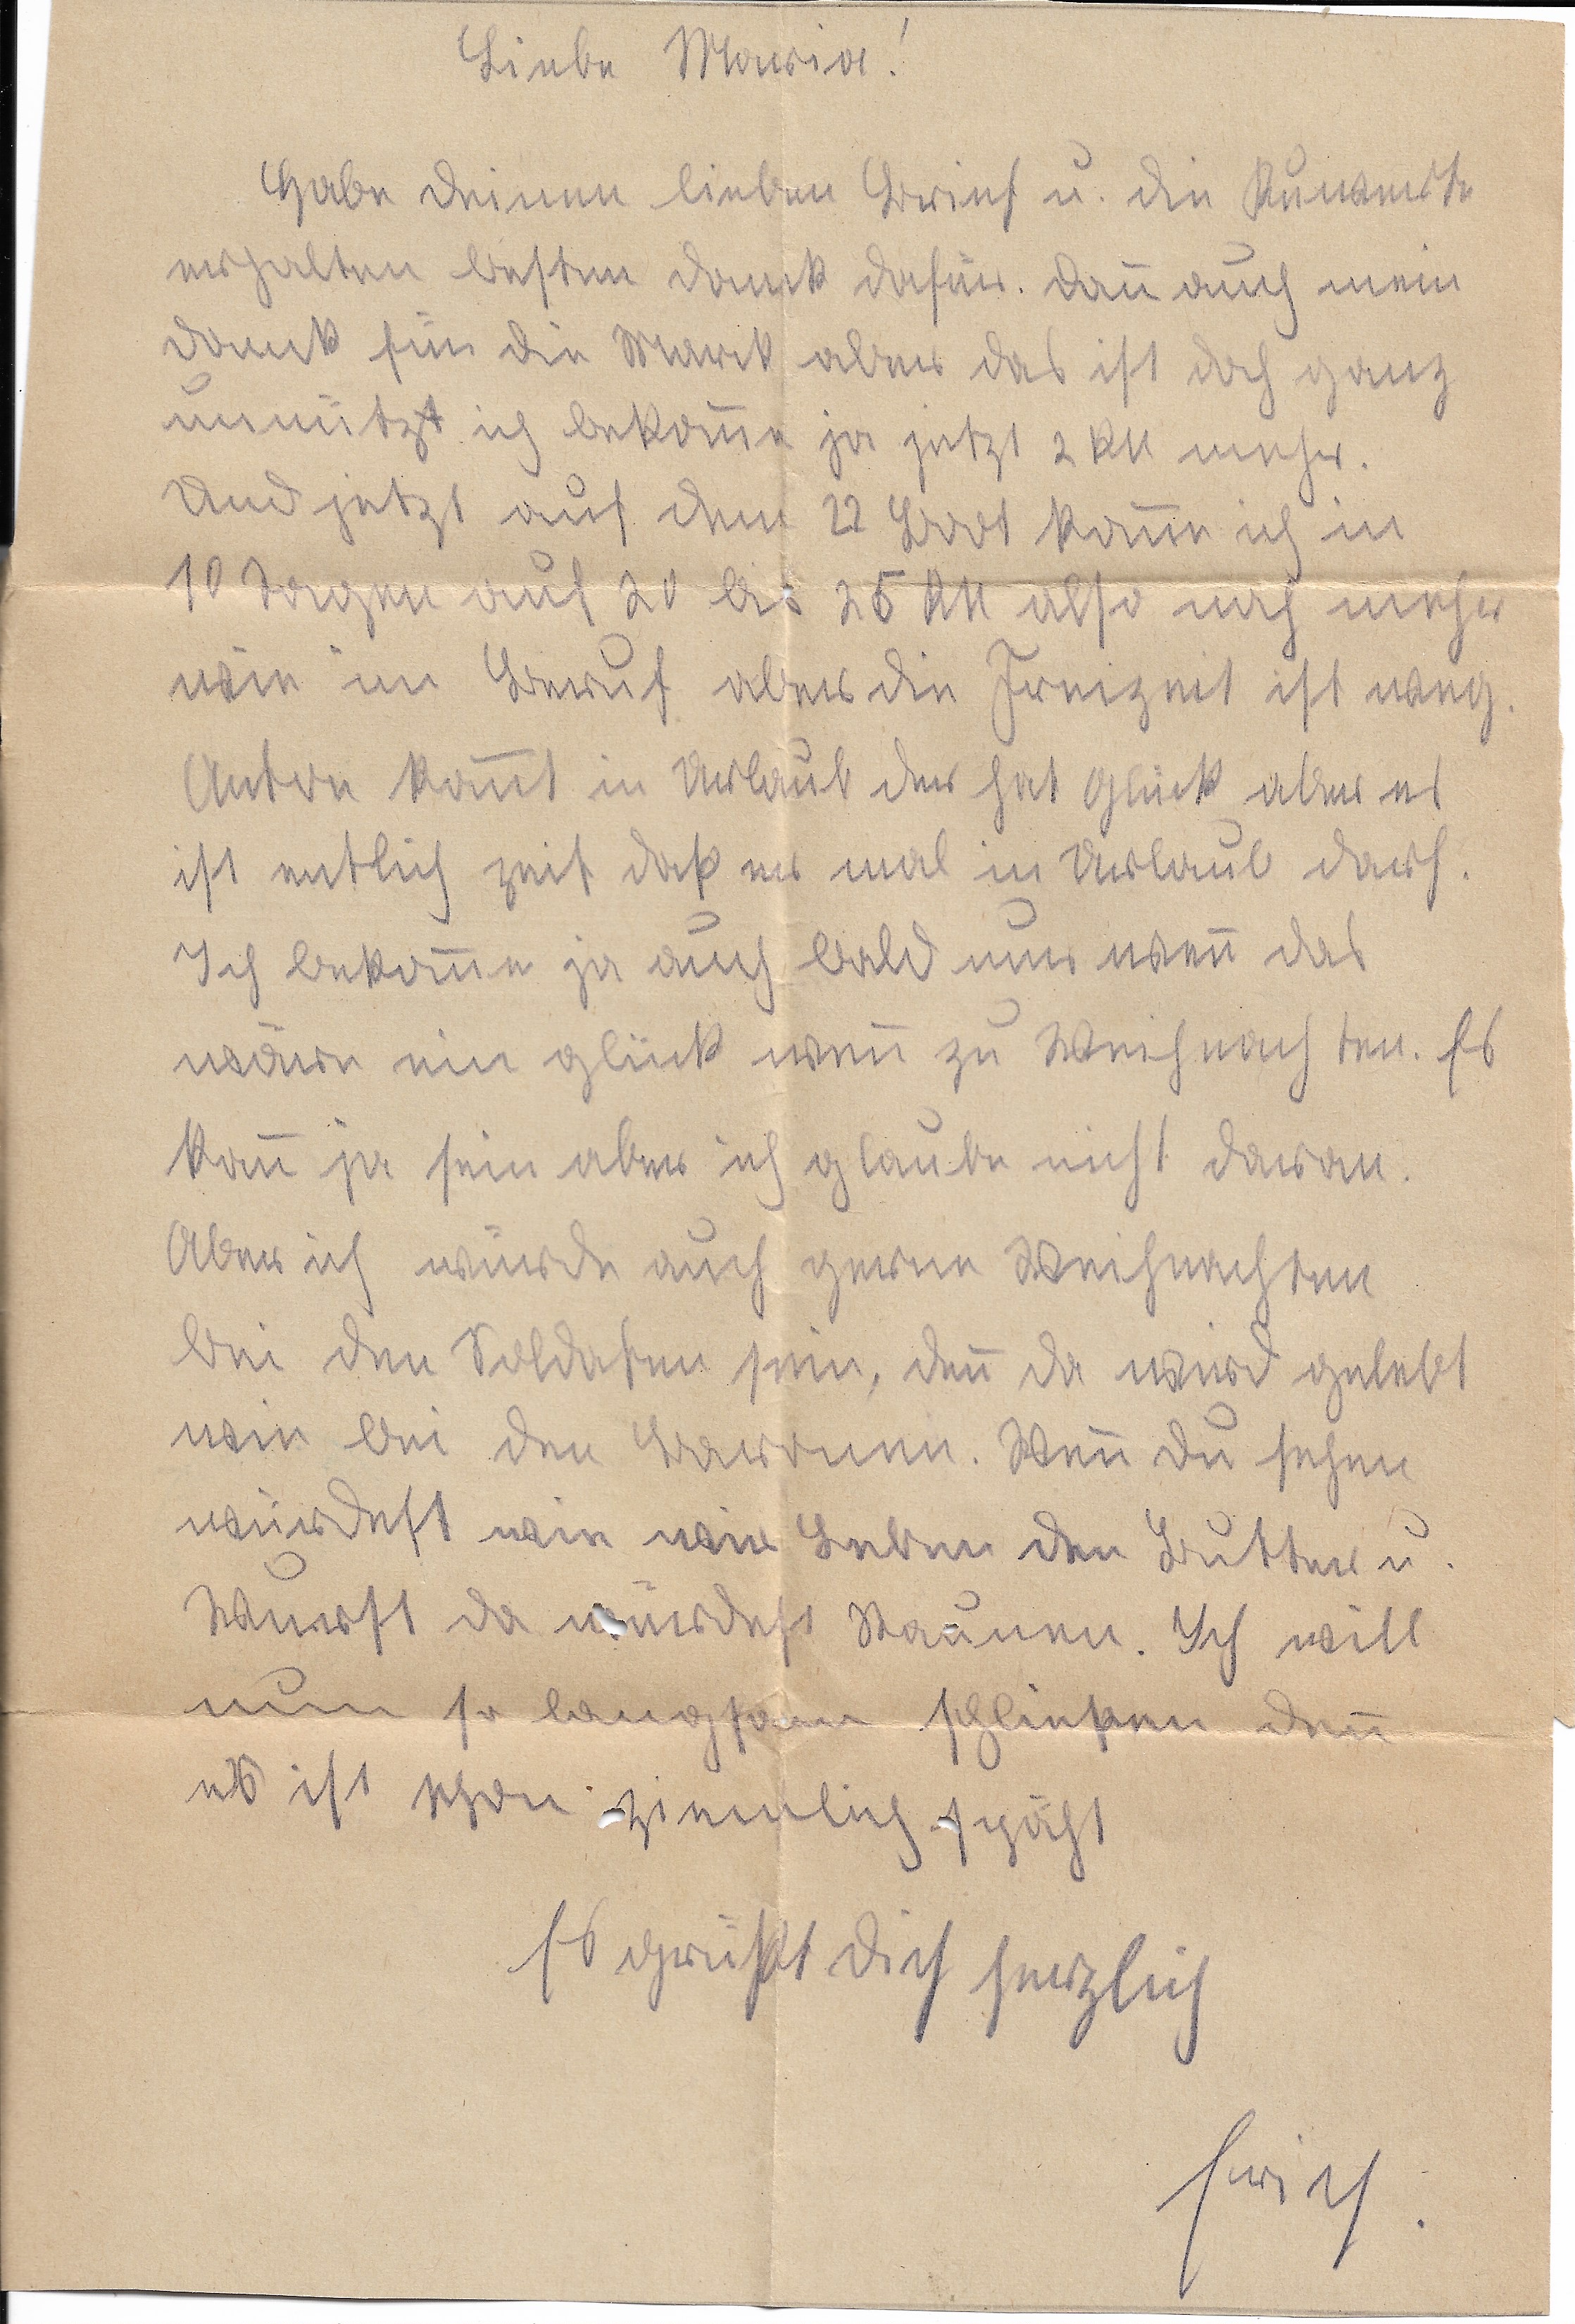 Liebe Maria!
Habe deinen lieben Brief u. die Kuwerte
erhalten besten Dank dafür. Dan̄ auch mein
Dank für die Mark aber das ist doch ganz
unnützt ich bekom̄e ja jetzt 2 RM meher.
Und jetzt auf dem Boot kom̄e ich in
10 Tagen auf 20 bis 25 RM also noch meher
wie im Beruf aber die Freizeit ist weg.
Anton kom̄t in Urlaub der hat Glück aber es
ist entlich zeit daß er mal in Urlaub darf.
Ich bekom̄e ja auch bald nur wen̄ das
wäre ein glück wen̄ zu Weihnachten. Es
kan̄ ja sein aber ich glaube nicht daran.
Aber ich würde auch gerne Weihnachten
bei den Soldaten sein, den̄ da wird gelebt
wie bei den Baronen. Wen̄ du sehen
würdest wie wir Leben den Butter u.
Wurst da würdest Staunen. Ich will
nun so langsam schließen den̄
es ist schon ziemlich späht
Es grüßt dich herzlich
Erich.